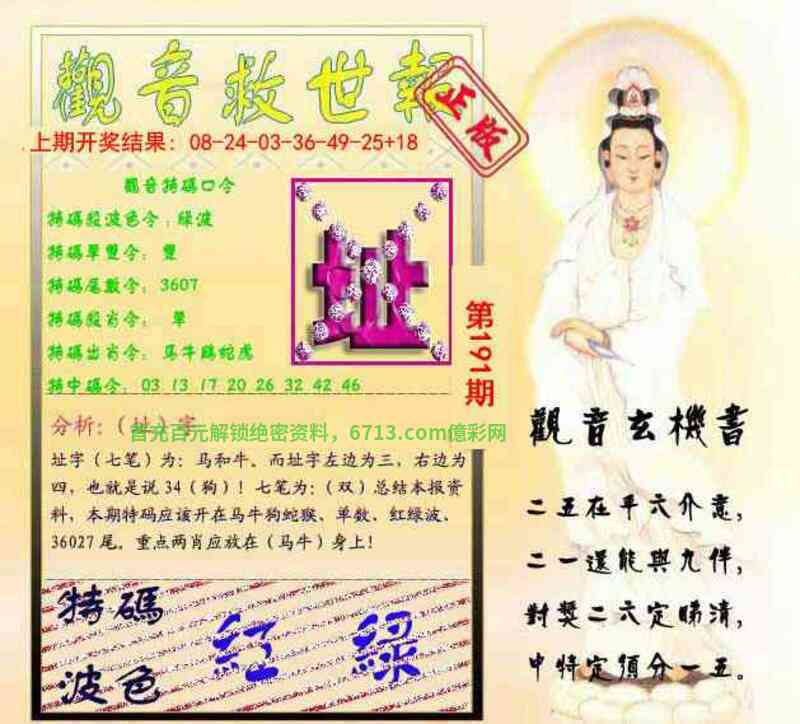 觀音救世報
正版
上期开奖结果：08-24-03-36-49-25+18
觀音特碼口令
特碼段波色令：绿波
特碼單雙令：雙
特碼尾數令：3607
特碼段肖令：單
特碼出肖令：马牛鷄蛇虎
特中碼令：03 13 17 20 26 32 42 46
址
第191期
分析：（址）字
首充百元解锁绝密资料，6713.com億彩网
址字（七笔）为：马和牛。而址字左边为三，右边为
四，也就是说34（狗）！七笔为：（双）总结本报资
料，本期特码应该开在马牛狗蛇猴、单数、红绿波、
36027尾。重点两肖应放在（马牛）身上！
特碼
波色
紅 綠
觀音玄機書
二五在平六介意，
二一還能與九伴，
對獎二六定睇清，
中特定須分一五。